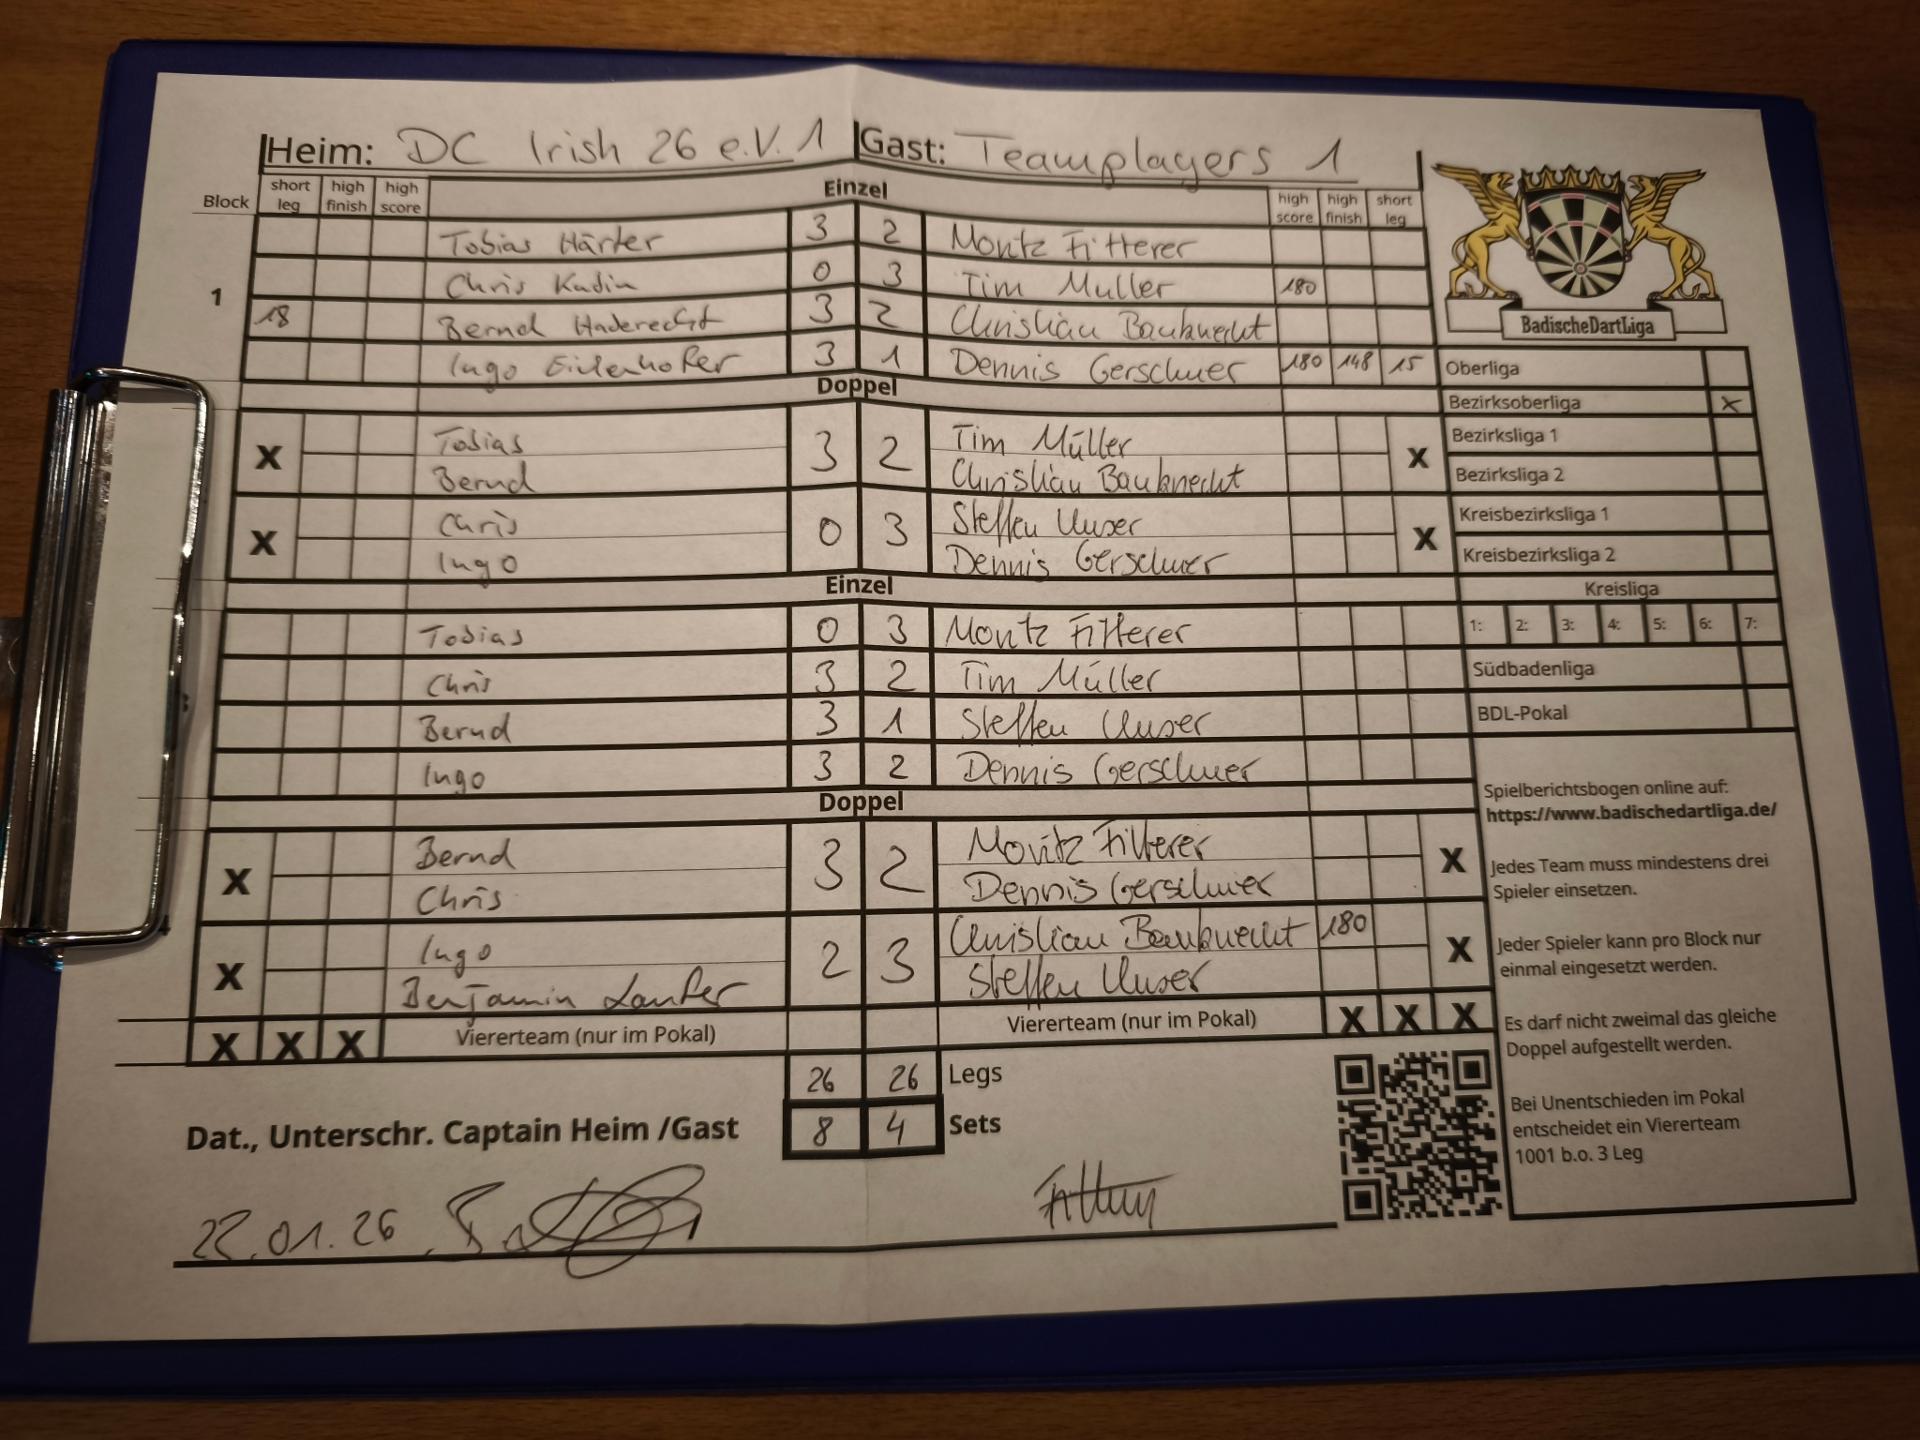 Heim: DC Irish 26 e.V. 1 Gast: Teamplayers 1
Block short leg high finish high score Einzel high score high finish short leg
Tobias Härter 3 2 Moritz Fitterer
Chris Kudin 0 3 Tim Muller 180
1
18 Bernd Haderecht 3 2 Christian Bauknecht
Ingo Eirlenhofer 3 1 Dennis Gerschner 180 148 15
Doppel
X Tobias 3 2 Tim Müller X
Bernd Christian Bauknecht
X Chris 0 3 Steffen Unser X
Ingo Dennis Gerschner
Einzel
Tobias 0 3 Moritz Fitterer
Chris 3 2 Tim Müller
Bernd 3 1 Steffen Unser
Ingo 3 2 Dennis Gerschner
Doppel
X Bernd 3 2 Moritz Fitterer X
Chris Dennis Gerschner
X Ingo 2 3 Christian Bauknecht 180 X
Benjamin Laufer Steffen Unser
X X X Viererteam (nur im Pokal) Viererteam (nur im Pokal) X X X
26 26 Legs
Dat., Unterschr. Captain Heim /Gast 8 4 Sets
22.01.26
BadischeDartLiga
Oberliga
Bezirksoberliga X
Bezirksliga 1
Bezirksliga 2
Kreisbezirksliga 1
Kreisbezirksliga 2
Kreisliga
1: 2: 3: 4: 5: 6: 7:
Südbadenliga
BDL-Pokal
Spielberichtsbogen online auf:
https://www.badischedartliga.de/
Jedes Team muss mindestens drei
Spieler einsetzen.
Jeder Spieler kann pro Block nur
einmal eingesetzt werden.
Es darf nicht zweimal das gleiche
Doppel aufgestellt werden.
Bei Unentschieden im Pokal
entscheidet ein Viererteam
1001 b.o. 3 Leg